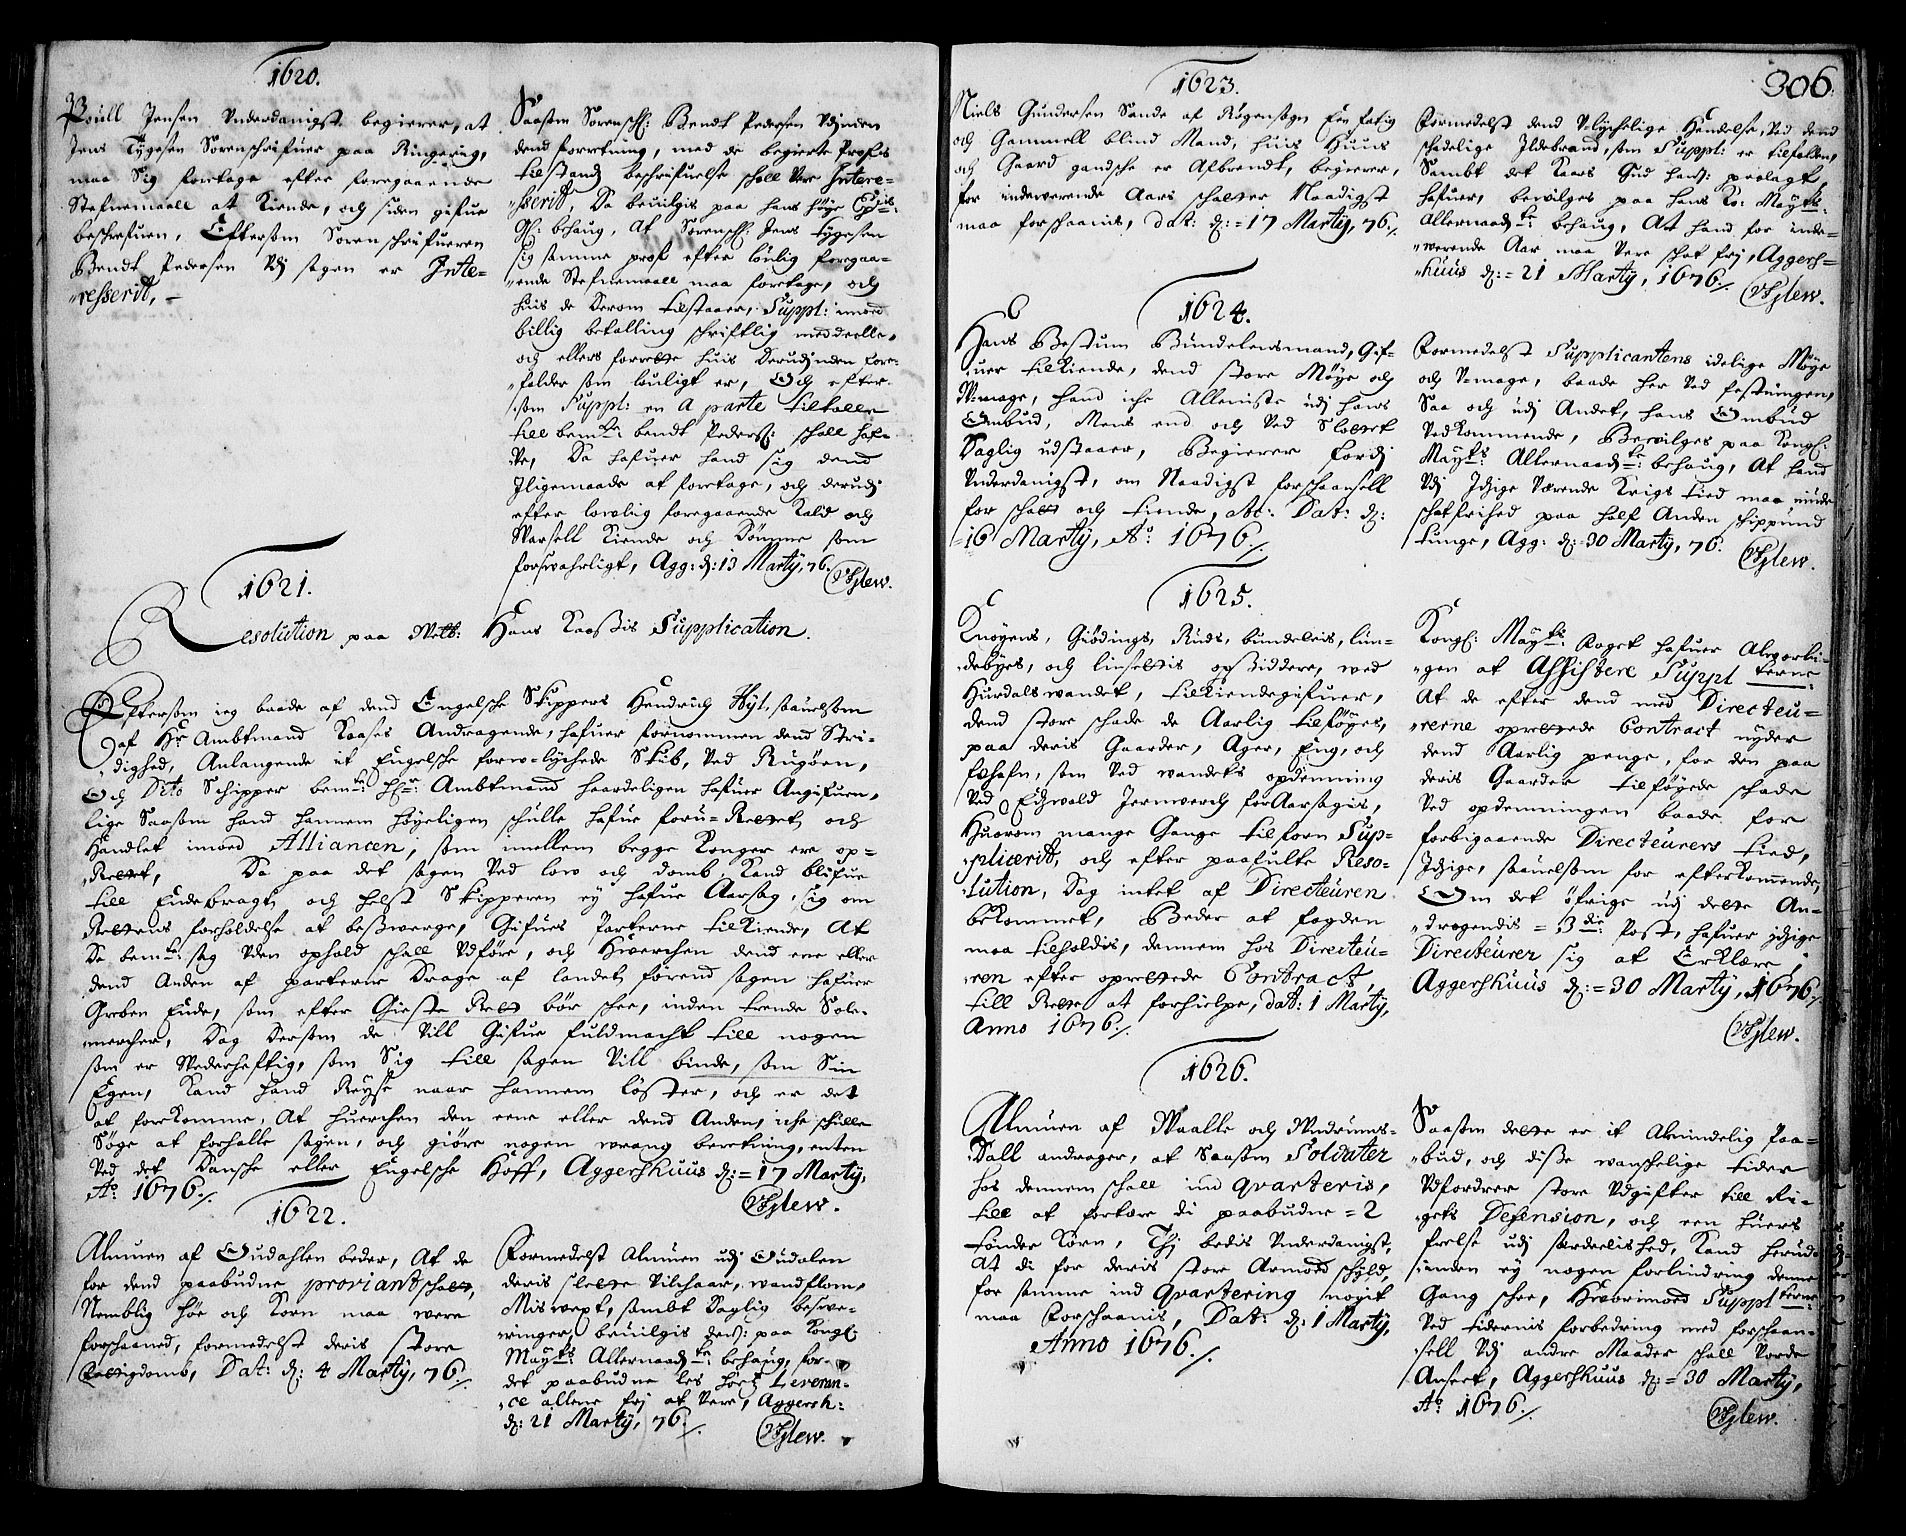 1620.
Poull Jensen Vnderdanigst begierer, at
Jens Tygesen Sorenschrifuer paa Ringerug,
maa Sig foretage efter foregaaende
Stefnemaall at Kiende, och siden gifue
beschrefuen, Eftersom Sorenschrifueren
Bendt Pedersen Vdj sagen er Inte-
resserit, -
Saasom Sorenschr: Bendt Pedersen Vdjnden
dend forretning, med de begierte Profs
tilstands beschrifuelse schall Vere Intere-
sserit, Da beuilgis paa hans høye
behaug, At Sorenschr: Jens Tygesen
sig samme prof efter loulig forega-
ende Stefnemaall maa foretage, och
huis de derom tilstaaer, Suppl: imod
billig betalling schriftlig meddeelle,
och ellers forrette huis derudjnden fore-
falder som louligt er, Och efter-
som Suppl: en A parte tiltalle
till bemte: bendt Peders: schall haf-
ve, Da hafuer hand sig dend
Jligemaade at foretage, och derudj
efter lowlig foregaaende Kald och
Warsell Kiende och Dømme som
forswahrligt, Agg: d: 13 Marty, 76.
1621.
Resolution paa Welb: Hans Kaaßis Supplication.
Eftersom ieg baade af dend Engelsche Skippers Hendrich Hyl, saauelsom
af Hr Ambtmand Kaases Andragende, hafuer fornommen dend Stri-
dighed, Anlangende it Engelsche forw-lychede Skib, Ved Rugøren,
Och Dito Schipper bemte: Hr: Ambtmand haardeligen hafuer Angifuen,
lige Saasom hand hannem høyeligen schulle hafue foru-Rettet, och
Handlet imod Alliancen, som imellem begge Konger er op-
Rettet, Da paa det sagen Ved low och domb, Kand blifue
till Endebragt, och helst Skipperen ej hafue Aarsag, sig om
Rettens forholdelse at beßwerge, Gifues Parterne tilkiende, At
De bemte: sag Vden ophold schall Vdføre, och Hwerchen dend ene eller
dend Anden af parterne Drage af landet førend sagen hafuer
Grben Ende, som efter Gieste Rett bør schee, inden trende Sole-
mercher, Dog dersom de Vill Gifue fuldmacht till nogen
som er Wederheftig, som Sig till sagen Vill binde, som Sin
Egen, Kand Hand Reyse naar hannem løster, och er det
at forekomme, At huerchen den eene eller dend Anden, iche schulle
Søge at forhalle sagen, och giøre nogen wrang beretning, enten
Ved det Dansche eller Engelsche Hoff, Aggershuus d: = 17 Marty,
Ao: 1676./.
1622.
Almuen af Oudahlen beder, At de
for dend paabudne proviantschatt,
Nemblig Høe och Korn maa were
forschaaned, formedelst deris store
Fattigdomb, Dat: d: 4 Marty, 76./.
Formedelst Almuen udj Oudalen
deris slette Vilchaar, wandflom,
Miswext, sambt Daglig beswe-
ringer, beuilgis
paa Kongl:
Mayts: Allernaadte: behaug, for-
det paabudne les Høes Leveran-
ce allene frj at Vere, Aggersh:
d: 21 Marty, 76./.
306.
1623.
Niels Gundersen Sande af Rögensogn Een fatig
och Gammell blind Mand, huis Huus
och Gaard gandsche er Afbrendt, begierer,
for indewerende Aars schatter Naadigst
maa forschaanis, dat: d: = 17 Marty, 76./.
Formedelst dend Vlychelige Hendelse, Ved dend
schadelige Ildebrand, som Suppl: er tilfalden,
Sambt det Kaars Gud hans: paalagt
hafuer, bevilges paa Hans Ko: Mayts:
Allernaadte: behaug, At hand for inde-
werende Aar maa Vere schat frj, Aggers-
huus d: = 21 Marty, 1676./.
1624.
Hans Bestum Bundelensmand, Gif-
uer tilkiende, dend store Møye och
Wmage, hand iche Alleniste udj hans
Ombud, Mens end och Ved Slottet
Daglig udstaaer, Begierer fordj
Vnderdanigst, om Naadigst forschaansell
for schatt och tiende, etc. Dat: d:
16 Marty, Ao: 1676./.
Formedelst Supplicantens idelige Møye
och V-mage, baade her Ved festningen,
Saa och udj Andet, hans Ombud
Vedkommende, Bevilges paa Kongl:
Mayts: Allernaadte: behaug, At hand
Vdj Itzige Værende Krigs tied maa niude
schatfrihed paa half Anden schippund
tunge, Agg: d: = 30 Marty, 76.
1625.
Knoyens, Giødings, Ruds, bundeleis, lun-
debyes, och opsiddere, wed
Hurdalswandet, tilkiendegifuer,
dend store schade de Aarlig tilføyes,
paa deris Gaarder, Ager, Eng, och
fæhafn, som Ved wandets opdemning
Ved Edswald Jernwerch forAarsagis,
Huorom mange Gange tilforn Sup-
plicerit, och efter paafulte Reso-
lution, Dog intet af Directeuren
bekommet, Beder at fogden
maa tilholdis, dennem hos Directeu-
ren efter oprettede Contract,
till Rette at forhielpe, dat: 1 Marty,
Anno 1676./.
Kongl: Mayts: Foget hafuer Alvorli-
gen at Assistere Suppl terne:
At de efter dend med Directeu-
rerne oprettede Contract nyder
dend Aarlig penge, for den paa
deris Gaarder tilføyede schade
Ved opdemningen baade for
forbigaaende Directeurers tied,
Itzige, saauelsom for efterkomende,
Om det öfrige udj dette An-
dragendis = 3die: Post, hafuer itzige
Directeurer sig at Erklære,
Aggershuus d: = 30 Marty, 1676./.
1626.
Almuen af Waalle och Wndrums-
Dall andrager, at Saasom Soldater
hos dennem schall ind qvarteris,
till at fortære di paabudne = 2
tønder Korn, Thj bedis Vnderdanigst,
At di for deris store Armods schyld,
for samme ind qvartering nogit
maa Forschaanis, Dat: d: 1 Marty,
Anno 1676./.
Saasom dette er it Almindelig Paa-
bud, och disse wanschelige tider
Vdfordrer store Vdgifter till Ri-
gets Defension, och een huers
frelse udj særdeelished, Kand herud-
jnden ej nogen forlindring denne
Gang schee, Hworimod Supplterne:
Ved tidernis forbedring med forschaan-
sell Vdj andre Maader schall Vorde
Anseet, Aggershuus d: = 30 Marty,
Ao: 1676./.